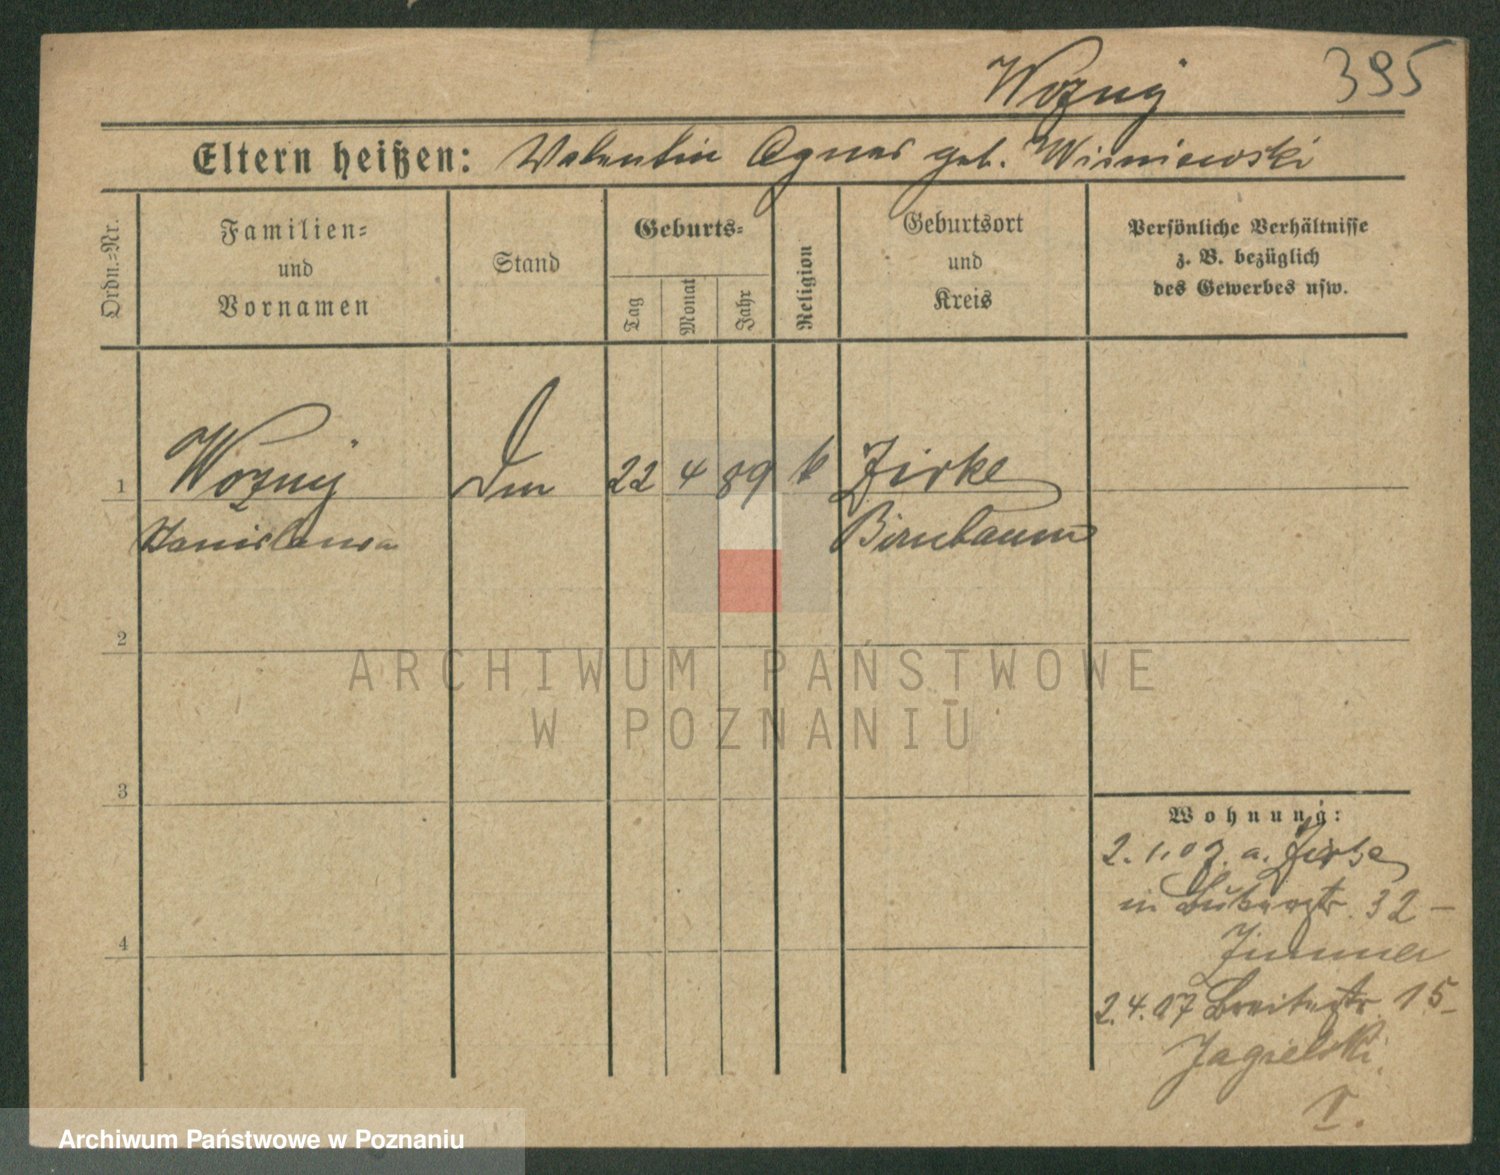 Wozny
395
Eltern heißen: Valentin Agnes geb. Wisniewski
Ordn.=Nr.
Familien=
und
Vornamen
Stand
Geburts=
Tag
Monat
Jahr
Religion
Geburtsort
und
Kreis
Persönliche Verhältnisse
z. B. bezüglich
des Gewerbes usw.
1
Wozny
22 4 89 k Zirke
Stanislawa
Birnbaum
2
ARCHIWUM PAŃSTWOWE
W POZNANIU
3
Wohnung:
2.1.07. a. Zirke
in 32 –
4
2.4.07 Breitestr. 15
Jagielski
I.
Archiwum Państwowe w Poznaniu